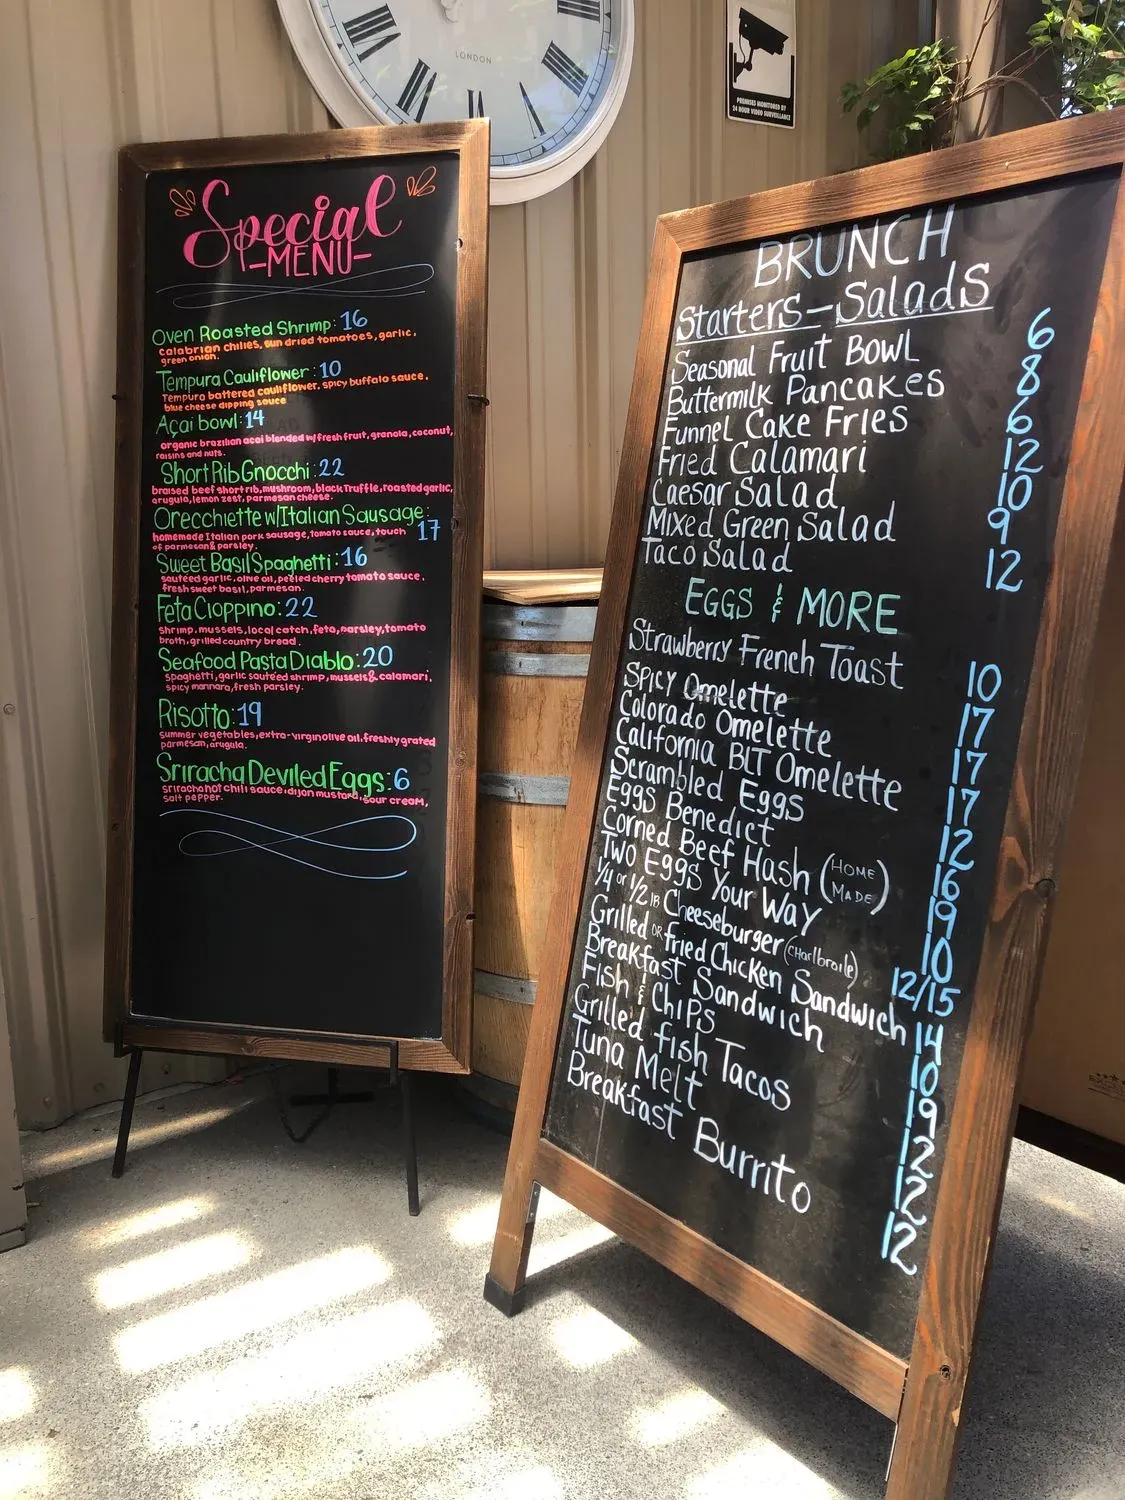 LONDON
PREMISES MONITORED BY
24 HOUR VIDEO SURVEILLANCE
Special
-MENU-
Oven Roasted Shrimp: 16
calabrian chilies, sun dried tomatoes, garlic,
green onion.
Tempura Cauliflower: 10
Tempura battered cauliflower, spicy buffalo sauce,
blue cheese dipping sauce
Açai bowl: 14
organic brazilian acai blended w/fresh fruit, granola, coconut,
raisins and nuts.
Short Rib Gnocchi: 22
braised beef short rib, mushroom, black Truffle, roasted garlic,
arugula, lemon zest, parmesan cheese.
Orecchiette w/Italian Sausage: 17
homemade Italian pork sausage, tomato sauce, touch
of parmesan & parsley.
Sweet Basil Spaghetti: 16
sauteed garlic, olive oil, peeled cherry tomato sauce,
fresh sweet basil, parmesan.
Feta Cioppino: 22
shrimp, mussels, local catch, feta, parsley, tomato
broth, grilled country bread.
Seafood Pasta Diablo: 20
spaghetti, garlic sauteed shrimp, mussels & calamari,
spicy marinara, fresh parsley.
Risotto: 19
summer vegetables, extra-virgin olive oil, freshly grated
parmesan, arugula.
Sriracha Deviled Eggs: 6
sriracha hot chili sauce, dijon mustard, sour cream,
salt pepper.
BRUNCH
Starters - Salads
Seasonal Fruit Bowl 6
Buttermilk Pancakes 8
Funnel Cake Fries 6
Fried Calamari 12
Caesar Salad 10
Mixed Green Salad 9
Taco Salad 12
EGGS & MORE
Strawberry French Toast 10
Spicy Omelette 17
Colorado Omelette 17
California BLT Omelette 17
Scrambled Eggs 12
Eggs Benedict 16
Corned Beef Hash (HOME MADE) 19
Two Eggs Your Way 10
1/4 or 1/2 lb Cheeseburger (Charlbroile) 12/15
Grilled or fried Chicken Sandwich 14
Breakfast Sandwich 10
Fish & Chips 19
Grilled fish Tacos 12
Tuna Melt 12
Breakfast Burrito 12